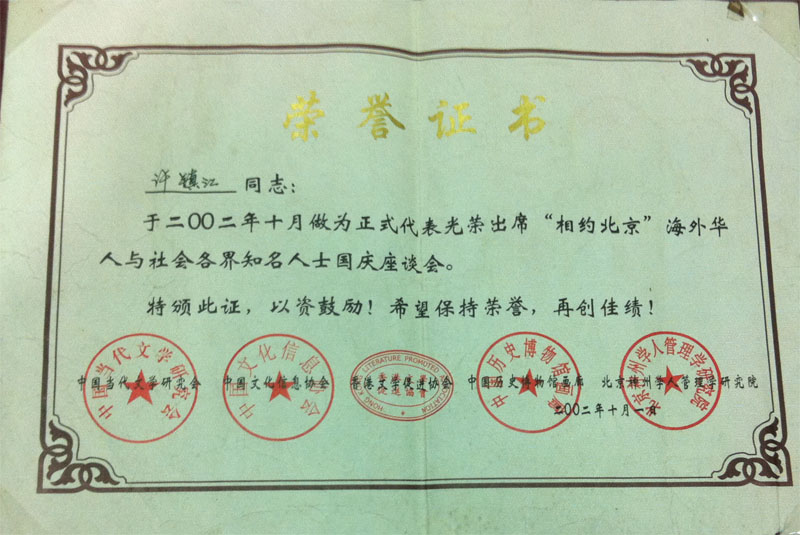 荣誉证书
许镇江 同志：
于二〇〇二年十月做为正式代表光荣出席“相约北京”海外华
人与社会各界知名人士国庆座谈会。
特颁此证，以资鼓励！希望保持荣誉，再创佳绩！
中国当代文学研究会 中国文化信息协会 香港文学促进协会 中国历史博物馆画廊 北京神州学人管理学研究院
二〇〇二年十月一日
中国当代文学研究会
中国文化信息协会
HONG KONG LITERATURE PROMOTED ASSOCIATION
香港文學促進協會
中国历史博物馆画廊
北京神州学人管理学研究院